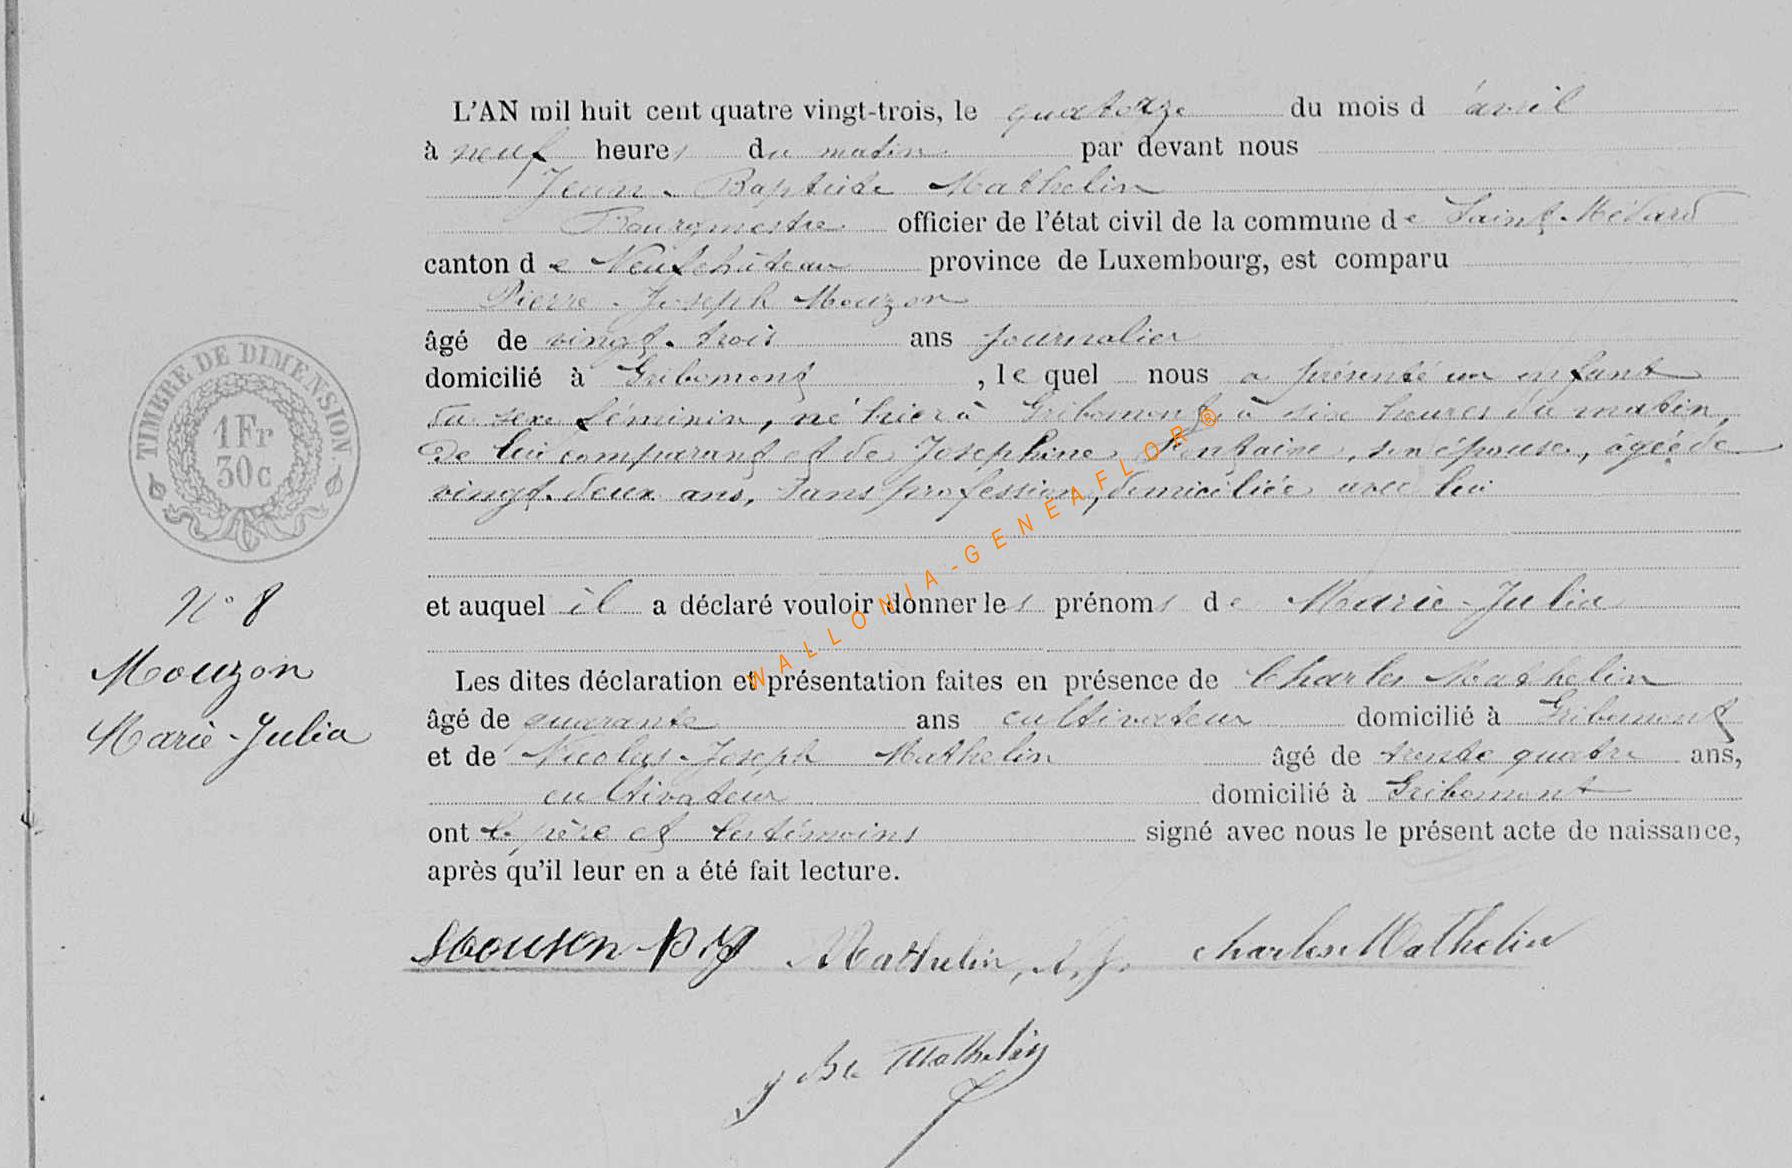 L'AN mil huit cent quatre vingt-trois, le quatorze du mois d'avril
à neuf heures du matin par devant nous
Jean-Baptiste Mathelin
Bourgmestre officier de l'état civil de la commune de Saint-Médard
canton de Neufchâteau province de Luxembourg, est comparu
Pierre-Joseph Mouzon
âgé de vingt-trois ans journalier
domicilié à Gribomont, lequel nous a présenté un enfant
du sexe féminin, né hier à Gribomont à six heures du matin,
de lui comparant et de Joséphine Fontaine, son épouse, âgée de
vingt-deux ans, sans profession, domiciliée avec lui
et auquel il a déclaré vouloir donner les prénoms de Marie-Julia
Les dites déclaration et présentation faites en présence de Charles Mathelin
âgé de quarante ans cultivateur domicilié à Gribomont
et de Nicolas-Joseph Mathelin âgé de trente quatre ans,
cultivateur domicilié à Gribomont
ont le père et les témoins signé avec nous le présent acte de naissance,
après qu'il leur en a été fait lecture.
Mouson P. J. Mathelin, N. J. Charles Mathelin
J Bte Mathelin
TIMBRE DE DIMENSION
1 Fr
30c
N° 8
Mouzon
Marie-Julia
WALLONIA-GENEAFLOR®